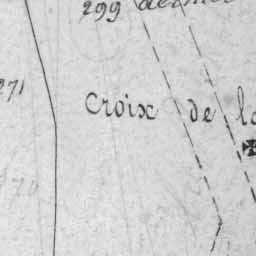 299
271
Croix de la
170